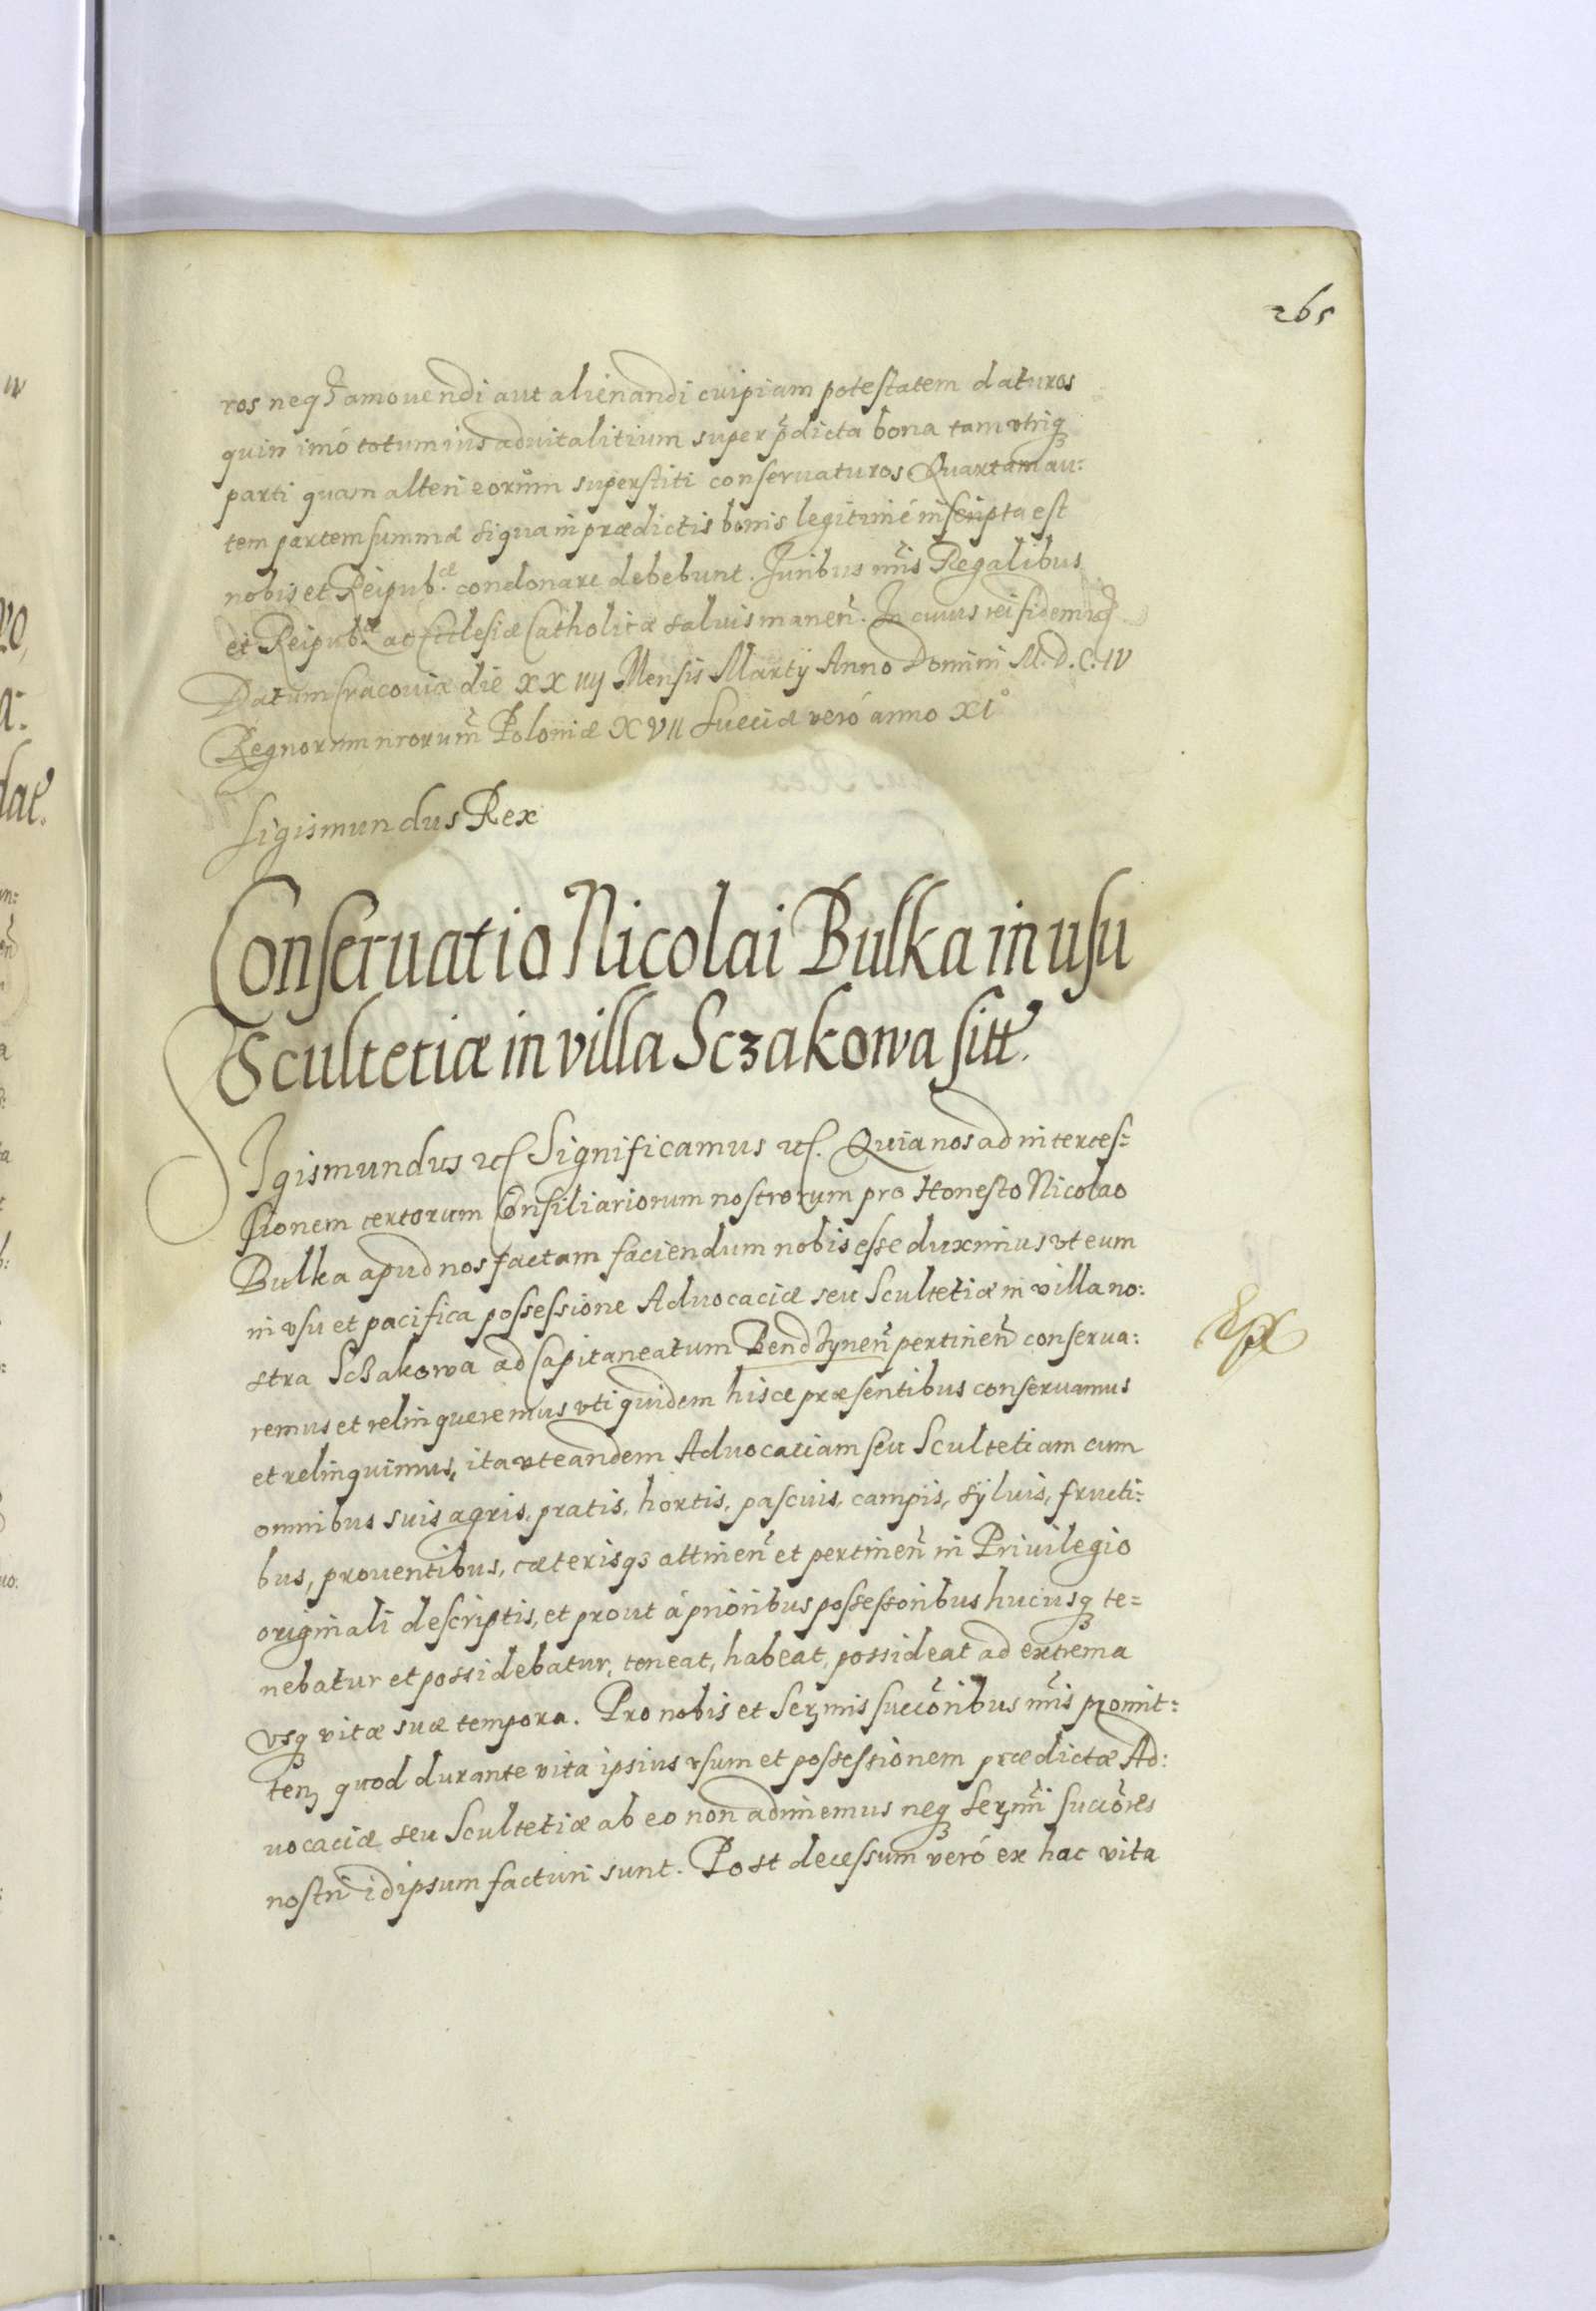 265
ros neq₃ amouendi aut alienandi cuipiam potestatem daturos
quin imó totum ius aduitalitium super p̃dicta bona tam vtriq₃
parti quam alteri eorum superstiti conseruaturos Quartam au:
tem partem summæ siqua in prædictis bonis legitimé inscripta est
nobis et Reipub.cæ condonare debebunt. Juribus nr̃is Regalibus
et Reipub.cæ ac Ecclesiæ Catholicæ saluis maneñ. In cuius rei fidem
Datum Cracouiæ die XX IIIJ Mensis Martÿ Anno Domini M.D.C.IV
Regnorum nrorum̃ Poloniæ XVII Sueciæ veró anno XI°
Sigismundus Rex
Conseruatio Nicolai Bulka in usu
Scultetiæ in villa Sczakowa sitt.
Sigismundus etc Significamus etc. Quia nos ad interces=
sionem certorum Consiliariorum nostrorum pro Honesto Nicolao
Bulka apud nos factam faciendum nobis esse duximus vt eum
in vsu et pacifica possessione Aduocaciæ seu Scultetiæ in villa no:
stra Sczakowa ad Capitaneatum Bendzyneñ pertineñ conserua:
remus et relinqueremus vti quidem hisce præsentibus conseruamus
et relinquimus, ita vt eandem Aduocaciam seu Scultetiam cum
omnibus suis agris, pratis, hortis, pascuis, campis, sÿluis, fructi:
bus, prouentibus, cæterisq₃ attineñ et pertineñ in Priuilegio
originali descriptis, et prout á prioribus possessoribus hucusq₃ te=
nebatur et possidebatur, teneat, habeat, possideat ad extrema
vsq₃ vitæ suæ tempora. Pro nobis et Ser₃mis succõribus nr̃is promit=
ten₃ quod durante vita ipsius vsum et possessionem prædictæ Ad:
uocaciæ seu Scultetiæ ab eo non adimemus neq₃ Ser₃mi succõres
nostri id ipsum facturi sunt. Post decessum veró ex hac vita